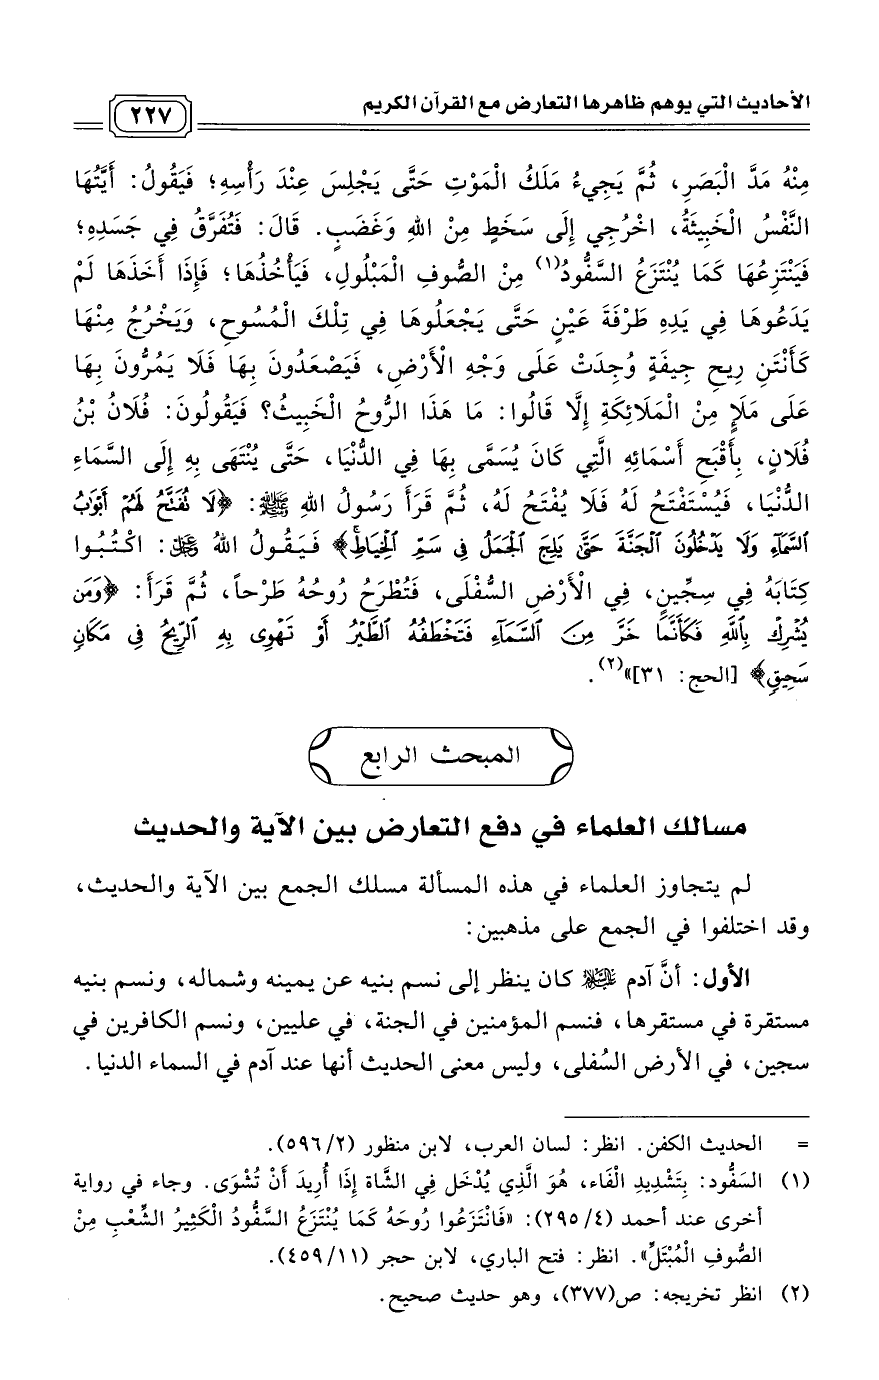 الأحاديث التي يوهم ظاهرها التعارض مع القرآن الكريم
٢٢٧
مِنْهُ مَدَّ الْبَصَرِ، ثُمَّ يَجِيءُ مَلَكُ الْمَوْتِ حَتَّى يَجْلِسَ عِنْدَ رَأْسِهِ؛ فَيَقُولُ: أَيَّتُهَا
النَّفْسُ الْخَبِيثَةُ، اخْرُجِي إِلَى سَخَطٍ مِنْ اللهِ وَغَضَبٍ. قَالَ: فَتُفَرَّقُ فِي جَسَدِهِ؛
فَيَنْتَزِعُهَا كَمَا يُنْتَزَعُ السَّفُّودُ(١) مِنْ الصُّوفِ الْمَبْلُولِ، فَيَأْخُذُهَا؛ فَإِذَا أَخَذَهَا لَمْ
يَدَعُوهَا فِي يَدِهِ طَرْفَةَ عَيْنٍ حَتَّى يَجْعَلُوهَا فِي تِلْكَ الْمُسُوحِ، وَيَخْرُجُ مِنْهَا
كَأَنْتَنِ رِيحِ جِيفَةٍ وُجِدَتْ عَلَى وَجْهِ الْأَرْضِ، فَيَصْعَدُونَ بِهَا فَلَا يَمُرُّونَ بِهَا
عَلَى مَلَإٍ مِنْ الْمَلَائِكَةِ إِلَّا قَالُوا: مَا هَذَا الرُّوحُ الْخَبِيثُ؟ فَيَقُولُونَ: فُلَانُ بْنُ
فُلَانٍ، بِأَقْبَحِ أَسْمَائِهِ الَّتِي كَانَ يُسَمَّى بِهَا فِي الدُّنْيَا، حَتَّى يُنْتَهَى بِهِ إِلَى السَّمَاءِ
الدُّنْيَا، فَيُسْتَفْتَحُ لَهُ فَلَا يُفْتَحُ لَهُ، ثُمَّ قَرَأَ رَسُولُ اللهِ ﷺ: ﴿لَا نُفَتَّحُ لَهُمْ أَبْوَابُ
السَّمَاءِ وَلَا يَدْخُلُونَ الْجَنَّةَ حَتَّى يَلِجَ الْجَمَلُ فِي سَمِّ الْخِيَاطِ﴾ فَيَقُولُ اللهُ ﷻ: اكْتُبُوا
كِتَابَهُ فِي سِجِّينٍ، فِي الْأَرْضِ السُّفْلَى، فَتُطْرَحُ رُوحُهُ طَرْحاً، ثُمَّ قَرَأَ: ﴿وَمَن
يُشْرِكْ بِاللَّهِ فَكَأَنَّمَا خَرَّ مِنَ السَّمَاءِ فَتَخْطَفُهُ الطَّيْرُ أَوْ تَهْوِي بِهِ الرِّيحُ فِي مَكَانٍ
سَحِيقٍ﴾ [الحج: ٣١]»(٢).
المبحث الرابع
مسالك العلماء في دفع التعارض بين الآية والحديث
لم يتجاوز العلماء في هذه المسألة مسلك الجمع بين الآية والحديث،
وقد اختلفوا في الجمع على مذهبين:
الأول: أنَّ آدم عليه السلام كان ينظر إلى نسم بنيه عن يمينه وشماله، ونسم بنيه
مستقرة في مستقرها، فنسم المؤمنين في الجنة، في عليين، ونسم الكافرين في
سجين، في الأرض السُفلى، وليس معنى الحديث أنها عند آدم في السماء الدنيا.
= الحديث الكفن. انظر: لسان العرب، لابن منظور (٥٩٦/٢).
(١) السَفُّود: بِتَشْدِيدِ الْفَاء، هُوَ الَّذِي يُدْخَل فِي الشَّاة إِذَا أُرِيدَ أَنْ تُشْوَى. وجاء في رواية
أخرى عند أحمد (٢٩٥/٤): «فَانْتَزَعُوا رُوحَهُ كَمَا يُنْتَزَعُ السَّفُّودُ الْكَثِيرُ الشِّعْبِ مِنْ
الصُّوفِ الْمُبْتَلِّ». انظر: فتح الباري، لابن حجر (٤٥٩/١١).
(٢) انظر تخريجه: ص(٣٧٧)، وهو حديث صحيح.